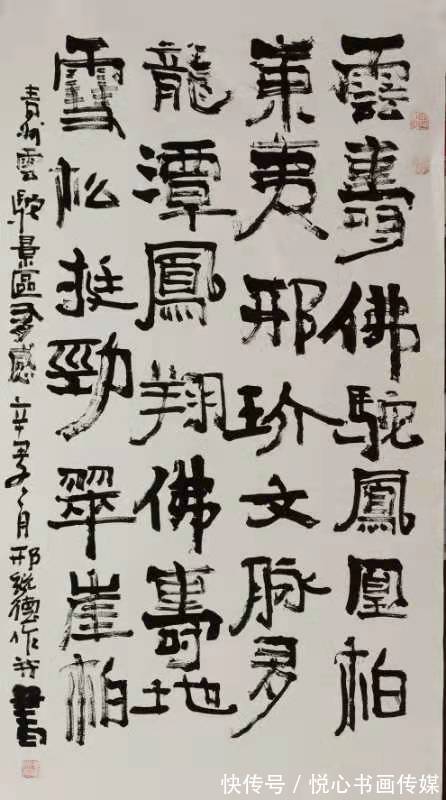 雲壽佛駝鳳凰柏
東夷邢玠文脉多
龍潭鳳翔佛壽地
雪松挺勁翠崖柏
青州雲駝景區多感 辛丑 月 邢 德作并書
快传号／悦心书画传媒